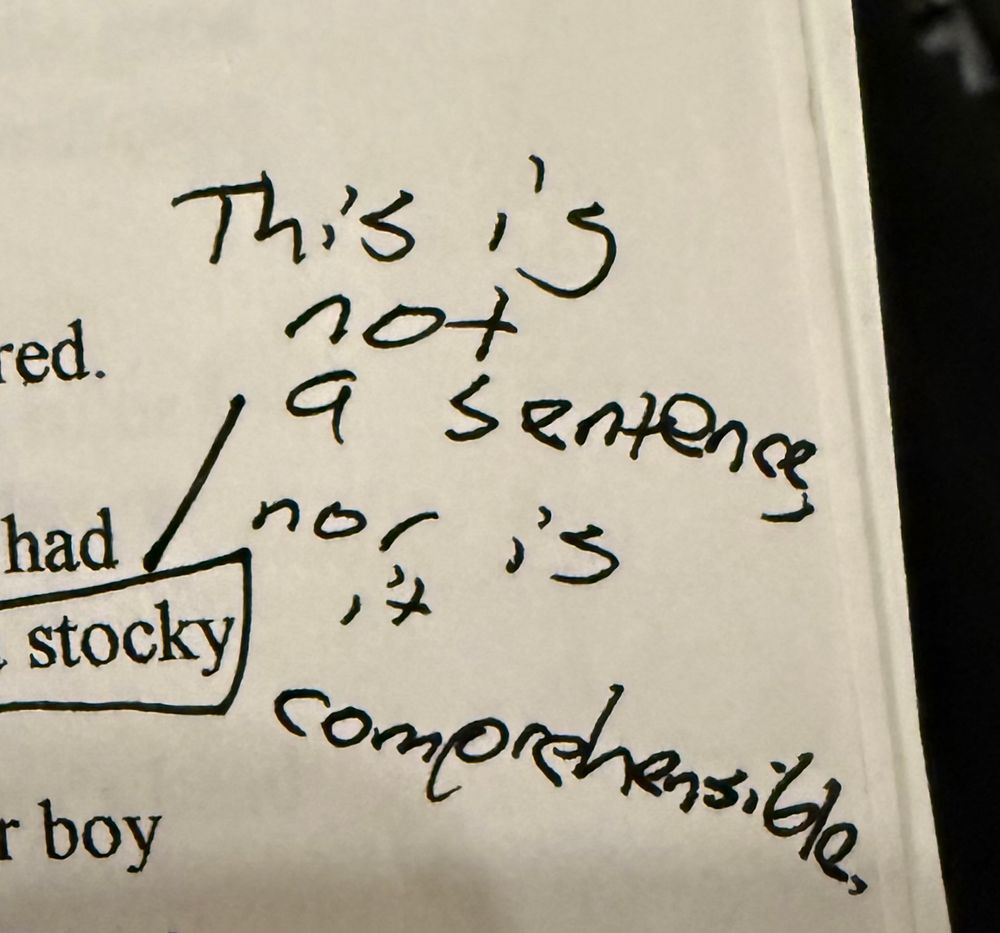 This is
not
red.
a sentence,
had
nor is
it
stocky
comprehensible.
boy